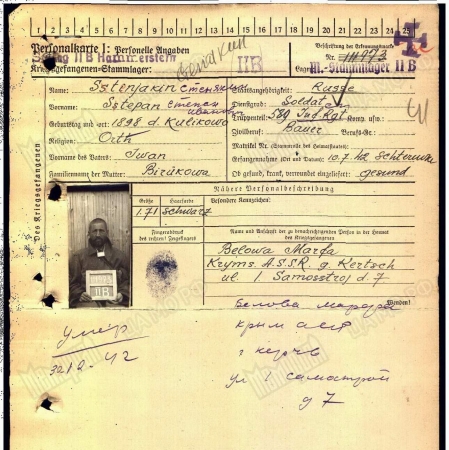 1 2 3 4 5 6 7 8 9 10 11 12 13 14 15 16 17 18 19 20 21 22 23 24 25
Personalkarte I: Personelle Angaben
Beschriftung der Erkennungsmarke
Stalag II B Hammerstein
Nr. 111973
Kriegsgefangenen-Stammlager:
II B
Lager: M.-Stammlager II B
Des Kriegsgefangenen
Name: Sstenjakin
Staatsangehörigkeit: Russe
Vorname: Sstepan Степан
Dienstgrad: Soldat
Truppenteil: 589 Inf. Rgt. Komp. usw.:
Geburtstag und -ort: 1898 d. Kulikowa
Zivilberuf: Bauer Berufs-Gr.:
Religion: Orth
Matrikel Nr. (Stammrolle des Heimatstaates):
Vorname des Vaters: Iwan
Gefangennahme (Ort und Datum): 10.7.42
Familienname der Mutter: Birükowa
Ob gesund, krank, verwundet eingeliefert: gesund
Nähere Personalbeschreibung
Größe Haarfarbe
Besondere Kennzeichen:
1.71 Schwarz
Fingerabdruck
des rechten! Zeigefingers
Name und Anschrift der zu benachrichtigenden Person in der Heimat
des Kriegsgefangenen
II B
Belowa Marfa
Kryms. A.S.S.R. g. Kertsch
ul. 1 Samosstroj d. 7
Wenden!
Белова Марфа
умер
Крим АССР
г Керчь
ул 1 самострой
д 7